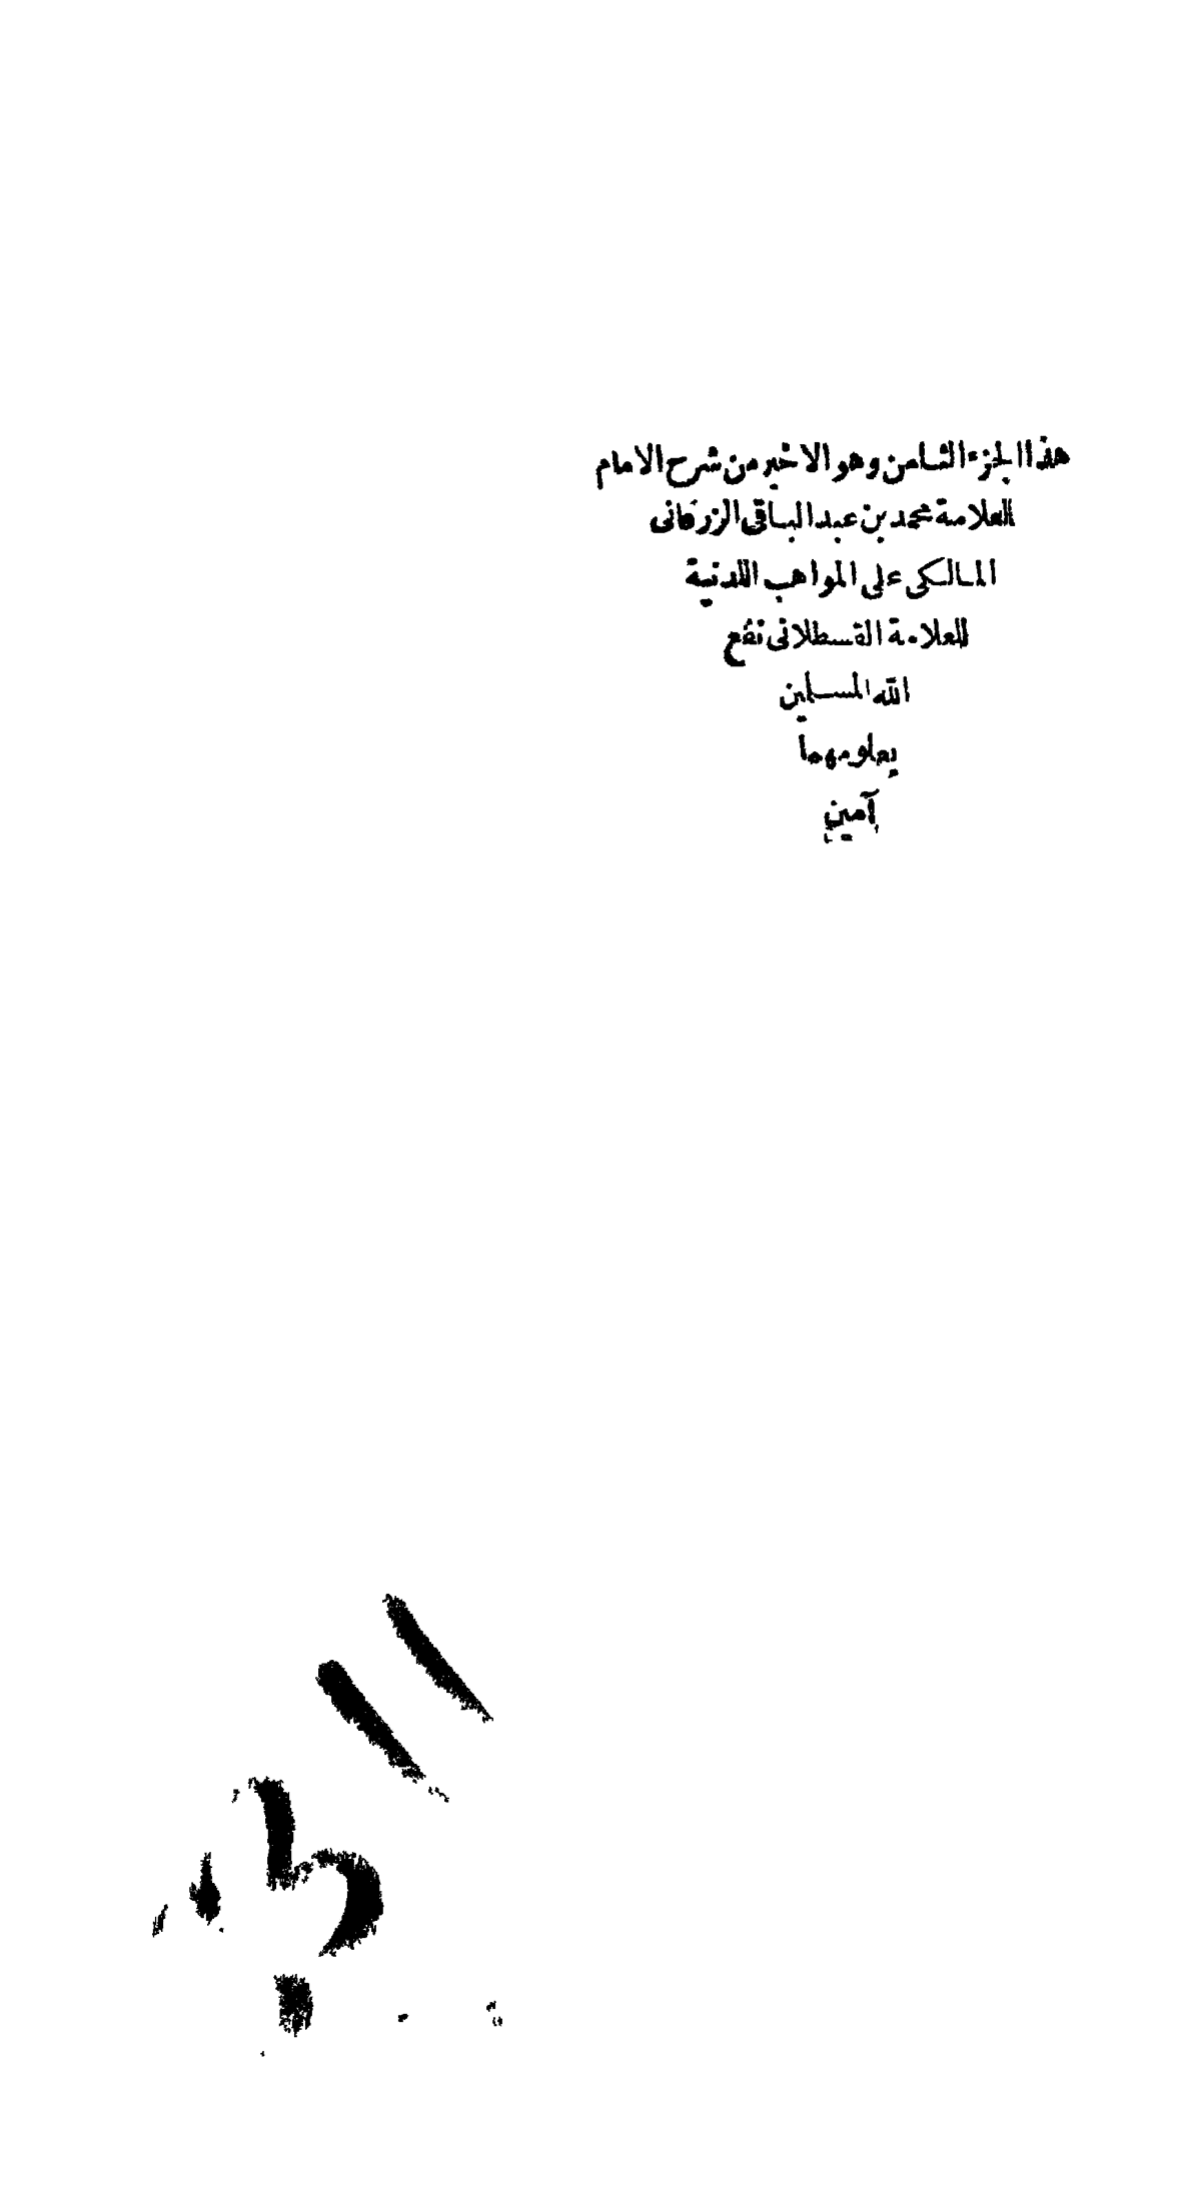 هذا الجزء الثامن وهو الاخير من شرح الامام
العلامة محمد بن عبد الباقى الزرقانى
المالكى على المواهب اللدنية
للعلامة القسطلانى نفع
الله المسلمين
بعلومهما
آمين